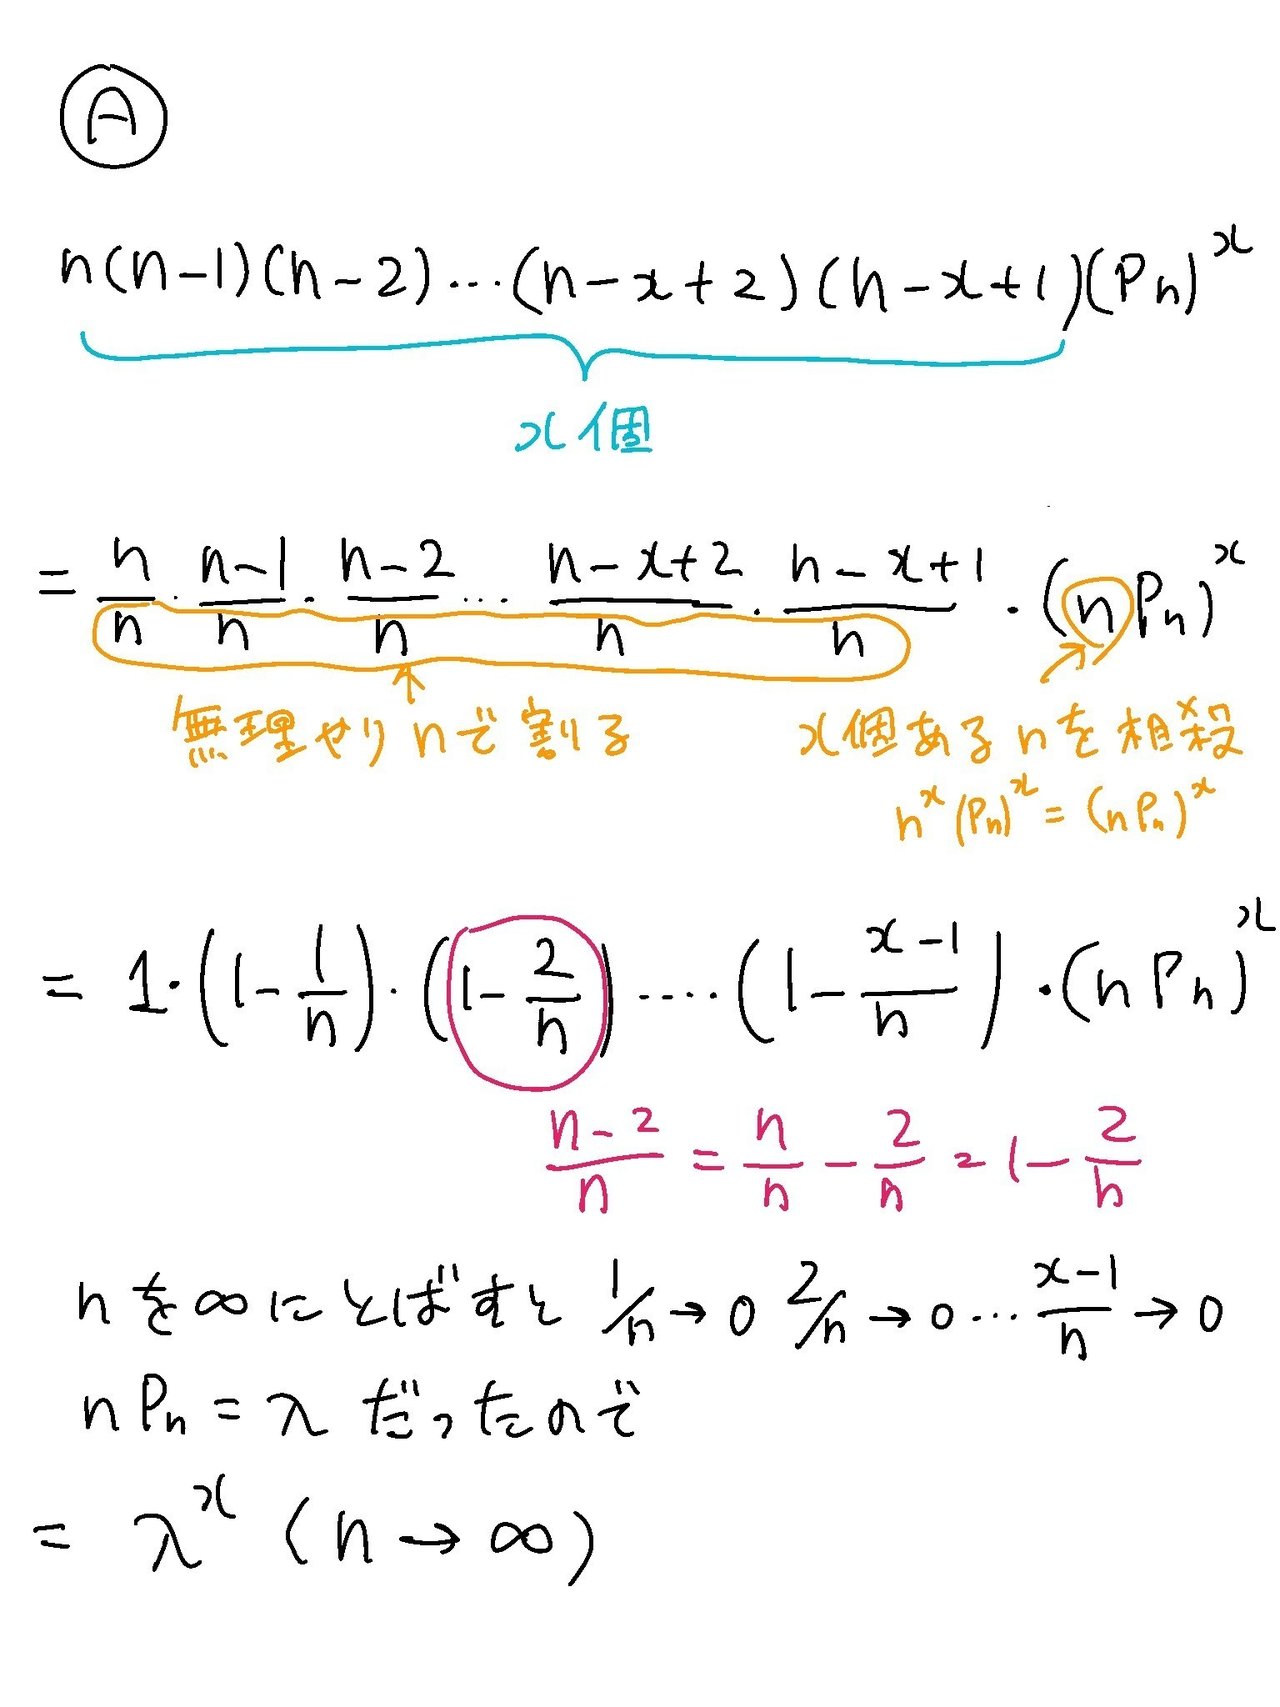 Ⓐ
n(n-1)(n-2)…(n-x+2)(n-x+1)(Pn)^x
x個
= n/n · (n-1)/n · (n-2)/n … (n-x+2)/n · (n-x+1)/n · (nPn)^x
無理やりnで割る
x個あるnを相殺
n^x (Pn)^x = (nPn)^x
= 1·(1-1/n)·(1-2/n)‥‥(1-(x-1)/n)·(nPn)^x
(n-2)/n = n/n - 2/n = 1-2/n
nを∞にとばすと 1/n→0 2/n→0…(x-1)/n→0
nPn=λ だったので
= λ^x (n→∞)